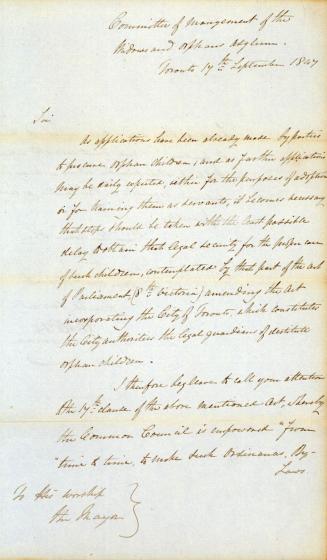 Committee of Management of the
Widows and Orphans Asylum.
Toronto 17th September 1847
Sir
As applications have been already made by parties
to procure orphan children, and as further applications
may be daily expected, either for the purposes of adoption
or for training them as servants, it becomes necessary
that steps should be taken with the least possible
delay to obtain that legal security for the proper care
of such children, contemplated by that part of the act
of Parliament, (8th Victoria) amending the Act
incorporating the City of Toronto, which constitutes
the City authorities the legal guardians of destitute
orphan children.
I therefore beg leave to call your attention
to the 14th clause of the above mentioned Act, whereby
the Common Council is empowered "From
"time to time, to make such Ordinances, By-
Laws
To His Worship
the Mayor